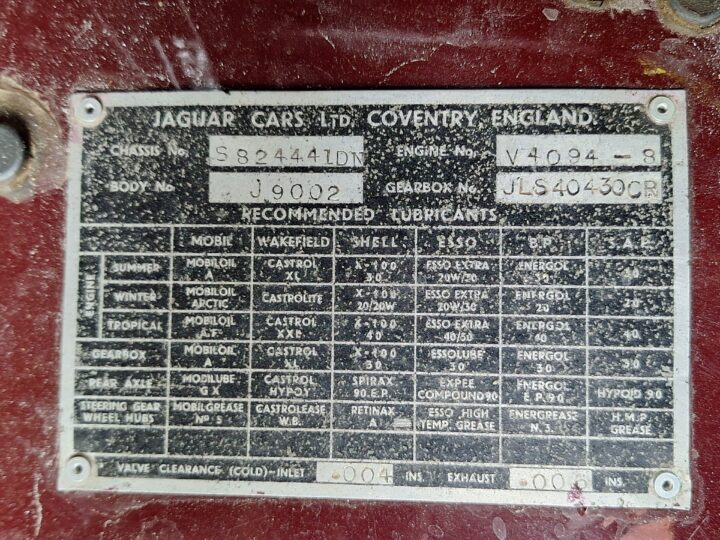 JAGUAR CARS LTD. COVENTRY, ENGLAND.
CHASSIS No. S824441DN ENGINE No. V4094-8
BODY No. J9002 GEARBOX No. JLS40430CR
RECOMMENDED LUBRICANTS
MOBIL WAKEFIELD SHELL ESSO B.P. S.A.E.
ENGINE
SUMMER MOBILOIL A CASTROL XL X-100 30 ESSO EXTRA 20W/30 ENERGOL 30
WINTER MOBILOIL ARCTIC CASTROLITE X-100 20/20W ESSO EXTRA 20W/30 ENERGOL 20 20
TROPICAL MOBILOIL A.F. CASTROL XXL X-100 40 ESSO EXTRA 40/50 ENERGOL 40 40
GEARBOX MOBILOIL A CASTROL XL X-100 30 ESSOLUBE 30 ENERGOL 30 30
REAR AXLE MOBILUBE GX CASTROL HYPOY SPIRAX 90.E.P. EXPEE COMPOUND 90 ENERGOL E.P.90 HYPOID 90
STEERING GEAR WHEEL HUBS MOBILGREASE No. 5 CASTROLEASE W.B. RETINAX A ESSO HIGH TEMP. GREASE ENERGREASE N.3. H.M.P. GREASE
VALVE CLEARANCE (COLD)-INLET .004 INS. EXHAUST INS.